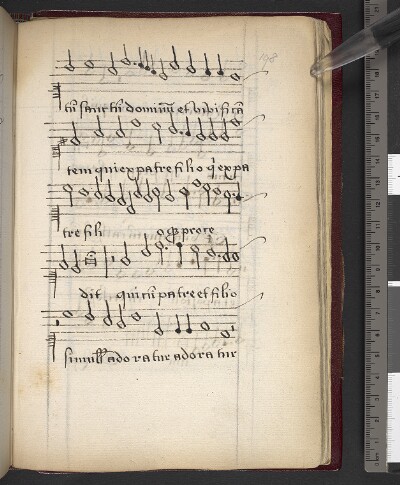 198
tū sanctū dominū et vivificā
tem qui ex patre filio qͥ ex pa
tre fili oqͥ proce
dit qui cū patre et filio
simul adoratur adoratur